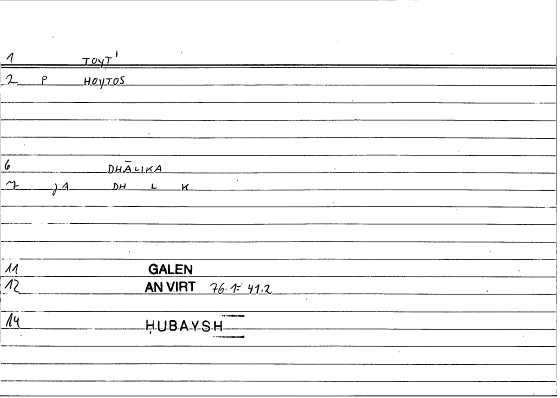 1 TOYT'
2 P HOYTOS
6 DHĀLIKA
7 JA DH L K
11 GALEN
12 AN VIRT 76.1- 41.2
14 ḤUBAYSH